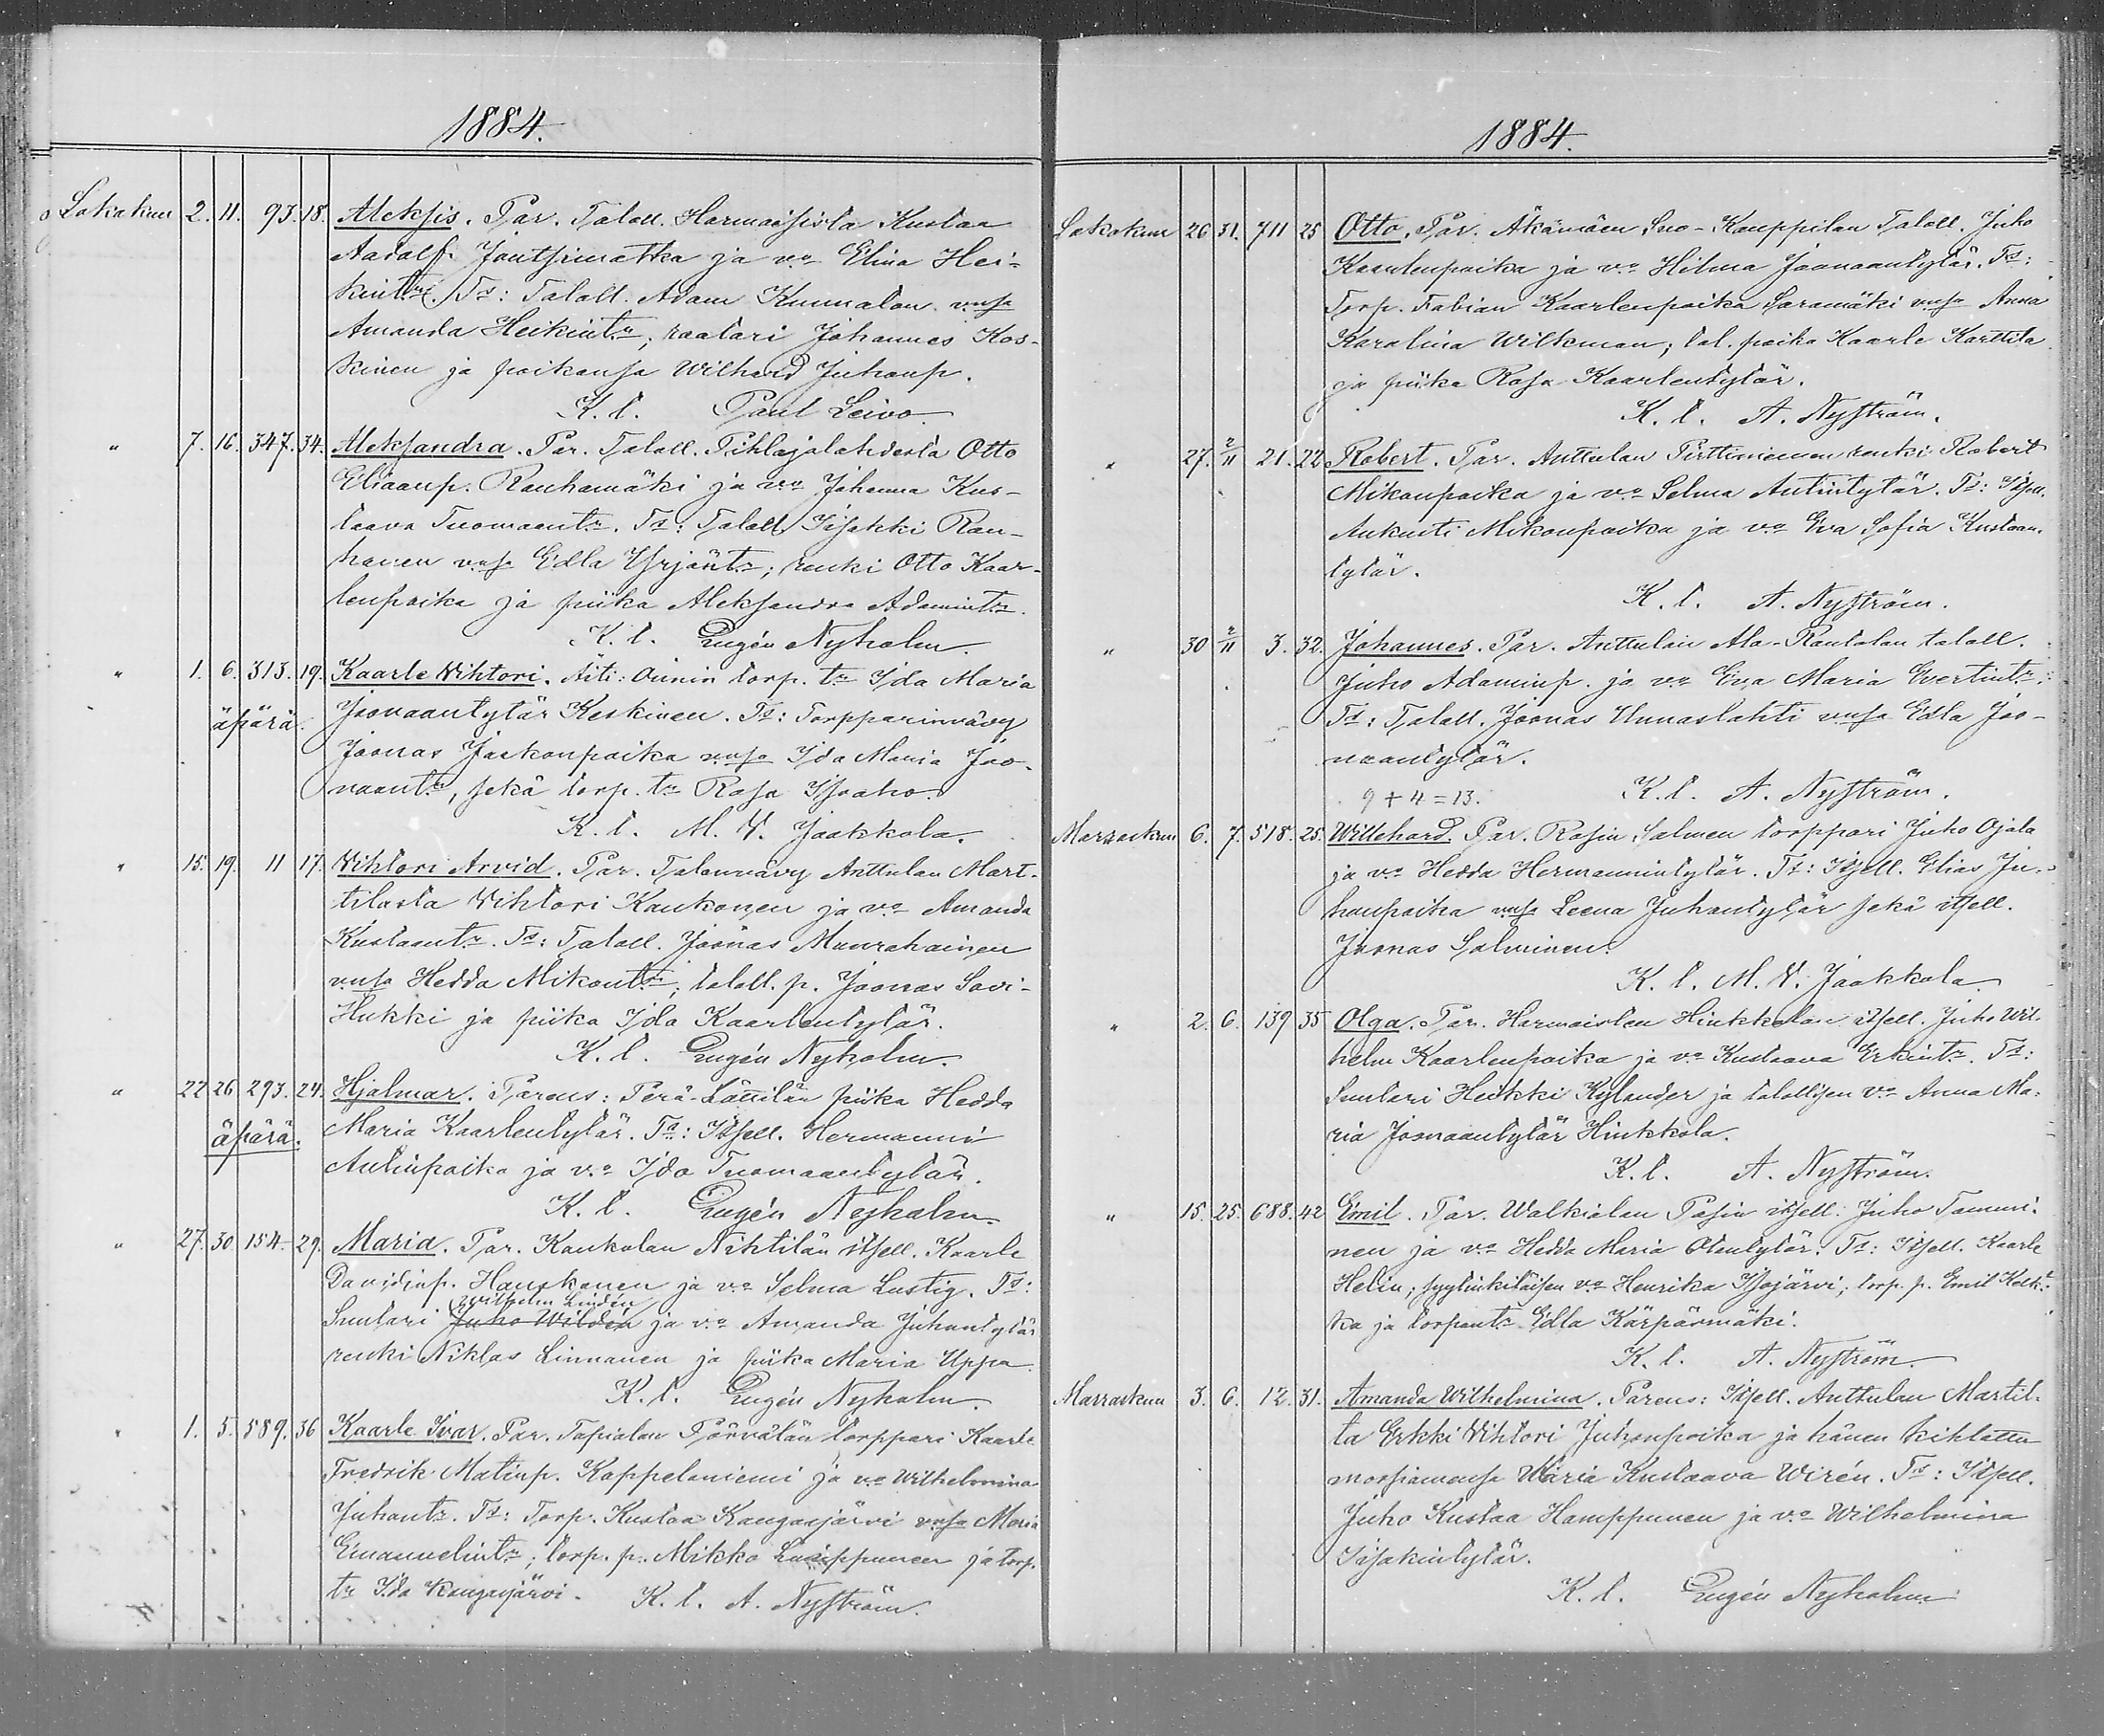 1884.
Lokakuu 2. 11. 93. 18. Aleksis. Par. Taloll. Harmaisista Kustaa
Aadolf. Jautsimatka ja vo Elina Hei-
kint. Ts: Taloll. Adam Kunnalan vnsa
Amanda Heikint.; raatari Johannes Kos-
kinen ja poikansa Wilhard Juhanp.
K. t. Paul Leivo.
" 7. 16. 347. 34. Aleksandra. Par. Taloll. Pihlajalahdesta Otto
Eliaanp. Rauhamäki ja vo Johanna Kus-
taava Tuomaantr. Ts: Taloll. Iisakki Rau-
hanen vnsa Edla Yrjäntr; renki Otto Kaar-
lenpoika ja piika Aleksandra Adamintr.
K. t. Eugén Nyholm.
" 1. 6. 313. 19. Kaarle Wihtori. Äiti: Oinin torp. tr Ida Maria
äpärä. Joonaantytär Keskinen. Ts: Torpparinvävy
Joonas Jaakonpoika vnsa Ida Maria Joo-
naantr, sekä torp. tr Rosa Isoaho.
K. t. M. V. Jaakkola.
" 15. 19. 11 17. Wihtori Arvid. Par. Talonvävy Anttulan Mart-
tilasta Wihtori Kaukonen ja vo Amanda
Kustaantr. Ts: Taloll. Joonas Murrahainen
vnsa Hedda Mikontr; taloll. p. Joonas Savi-
Hukki ja piika Ida Kaarlentytär.
K. t. Eugén Nyholm.
" 22 26 293. 24. Hjalmar. Parens: Perä-Länilän piika Hedda
äpärä. Maria Kaarlentytär. Ts: Itsell. Hermanni
Antinpoika ja vo Ida Tuomaantytär.
K. t. Eugén Nyholm.
" 27. 30 154. 29. Maria. Par. Kaukolan Nihtilän itsell. Kaarle
Davidinp. Hauskanen ja vo Selma Lustig. Ts:
Wilhelm Lindén
Suutari Juho Wildén ja vo Amanda Juhantytär
renki Niklas Linnanen ja piika Maria Uppa.
K. t. Eugén Nyholm.
" 1. 5. 589. 36 Kaarle Ivar. Par. Tapialan Pörvälän torppari Kaarle
Fredrik Matinp. Kappelaniemi ja vo Wilhelmina
Juhantr. Ts: Torp. Kustaa Kangasjärvi vnsa Maria
Emanuelintr; torp. p. Mikko ja torp.
tr Ida Kangasjärvi. K. t. A. Nyström.
1884.
Lokakuu 26 31. 711 25 Otto. Par. Äkämäen Suo-Kauppilan Taloll. Juho
Kaarlenpoika ja vo Hilma Joonaantytär. Ts:
Torp. Fabian Kaarlenpoika Saramäki vnsa Anna
Karolina Wilkman; tal. poika Kaarle Karttila
ja piika Rosa Kaarlentytär.
K. t. A. Nyström.
" 27. 2/11 21. 22 Robert. Par. Anttulan Pirttiniemen renki Robert
Mikonpoika ja vo Selma Antintytär. Ts: Itsell.
Aukusti Mikonpoika ja vo Eva Sofia Kustaan-
tytär.
K. t. A. Nyström.
" 30 2/11 3. 32. Johannes. Par. Anttulan Ala-Rantalan taloll.
Juho Adaminp. ja vo Eva Maria Evertintr.
Ts: Taloll. Joonas Unnaslahti vnsa Edla Joo-
naantytär.
9 + 4 = 13. K. t. A. Nyström.
Marraskuu 6. 7. 518. 25. Willehard. Par. Rasin Salmen torppari Juho Ojala
ja vo Hedda Hermannintytär. Ts: Itsell. Elias Ju-
hanpoika vnsa Leena Juhantytär sekä itsell.
Joonas Salminen.
K. t. M. V. Jaakkola.
" 2. 6. 139 35 Olga. Par. Harmaisten Hinkkalan itsell. Juho Wil-
helm Kaarlenpoika ja vo Kustaava Erkintr. Ts:
Suutari Heikki Kylander ja talollisen vo Anna Ma-
ria Joonaantytär Hinkkala.
K. t. A. Nyström.
" 15. 25. 688. 42 Emil. Par. Walkialan Pasin itsell. Juho Tammi-
nen ja vo Hedda Maria Otontytär. Ts: Itsell. Kaarle
Helin; syytinkiläisen vo Henrika Isojärvi; torp. p. Emil
ka ja torpantr Edla Kärpärmäki.
K. t. A. Nyström.
Marraskuu 3. 6. 12. 31. Amanda Wilhelmina. Parens: Itsell. Anttulan Martil-
ta Erkki Wihtori Juhanpoika ja hänen kihlattu
morsiamensa Maria Kustaava Wirén. Ts: Itsell.
Juho Kustaa Hamppunen ja vo Wilhelmina
Iisakintytär.
K. t. Eugén Nyholm.